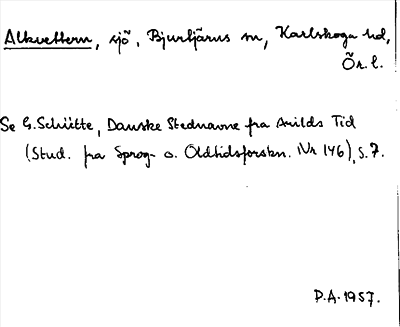 Alkvettern, sjö, Bjurtjärns sn, Karlskoga hd,
Ör. l.
Se G. Schütte, Danske Stednavne fra Arilds Tid
(Stud. fra Sprog- o. Oldtidsforskn. Nr 146), s. 7.
P.A. 1957.